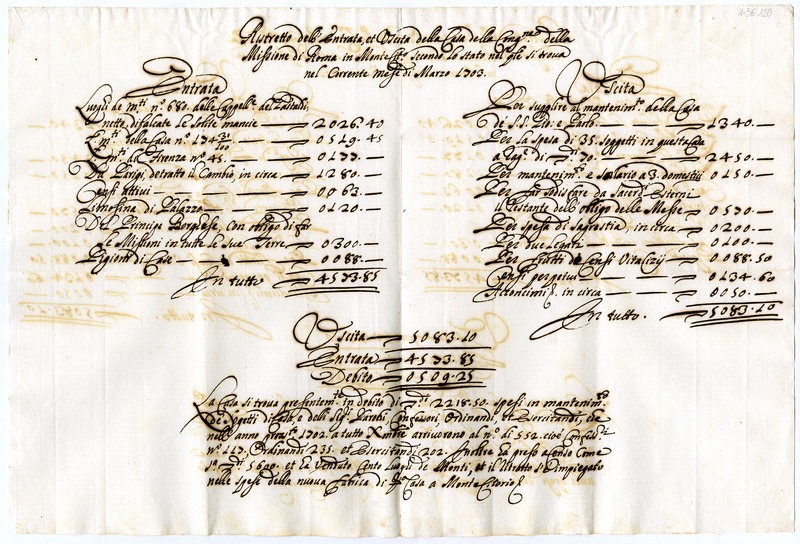 1-36-120
Ristretto dell'Entrata, et Uscita della Casa della Cong.ne della
Missione di Roma in Monte Cit.o secondo lo Stato nel q.le si trova
nel Corrente mese di Marzo 1703.
Entrata
Luoghi de m.ti n.o 680. delle Cappell.e
netto, difalcate le solite mancie — 2026.40
m.ti della Casa n.o 174 — 0519.45
m.ti di Firenza n.o 45. — 0177.—
Da Parigi, detratto il Cambio, in circa — 1280.—
Censi attivi — 0063.—
Limosina di Palazzo — 0120.—
Dal Principe Borghese, con obligo di far
le Missioni in tutte le sue Terre — 0300.—
Pigioni di Case — 0088.—
In tutto — 4573.85
Uscita
Per supplire al mantenim.to della Casa
de' SS. — 1340.—
Per la Spesa di 35. Soggetti in questa Casa
a rag.e di 70. — 2450.—
Per mantenim.to e Salario a 3. domestici — 0150.—
Per far sodisfare da Sacerd.ti Esterni
il restante dell'obligo delle Messe — 0570.—
Per Spesa di Sagrastia, in circa — 0200.—
Per due Legati — 0100.—
Per frutti de Censi Vitalizij — 0088.50
Censi perpetui — 0134.60
Acconcimi in circa — 0050.—
In tutto. — 5083.10
Uscita — 5083.10
Entrata — 4573.85
Debito — 0509.25
La Casa si trova presentem.te in debito di 2218.50 spesi in mantenim.to
de Sogetti di Casa, e delli Sig.ri Parochi, Confessori, Ordinandi, et Esercitandi, che
nell'anno pros.o 1702. a tutto Xmbre arrivorono al n.o di 552. cioè Confess.ri
n.o 117. Ordinandi 235. et Esercitandi 202. Inoltre hà preso a Censo
5600. et hà Venduto Cento Luoghi di Monti, et il ritratto s'è impiegato
nelle spese della nuova fabrica di Casa a Monte Citorio